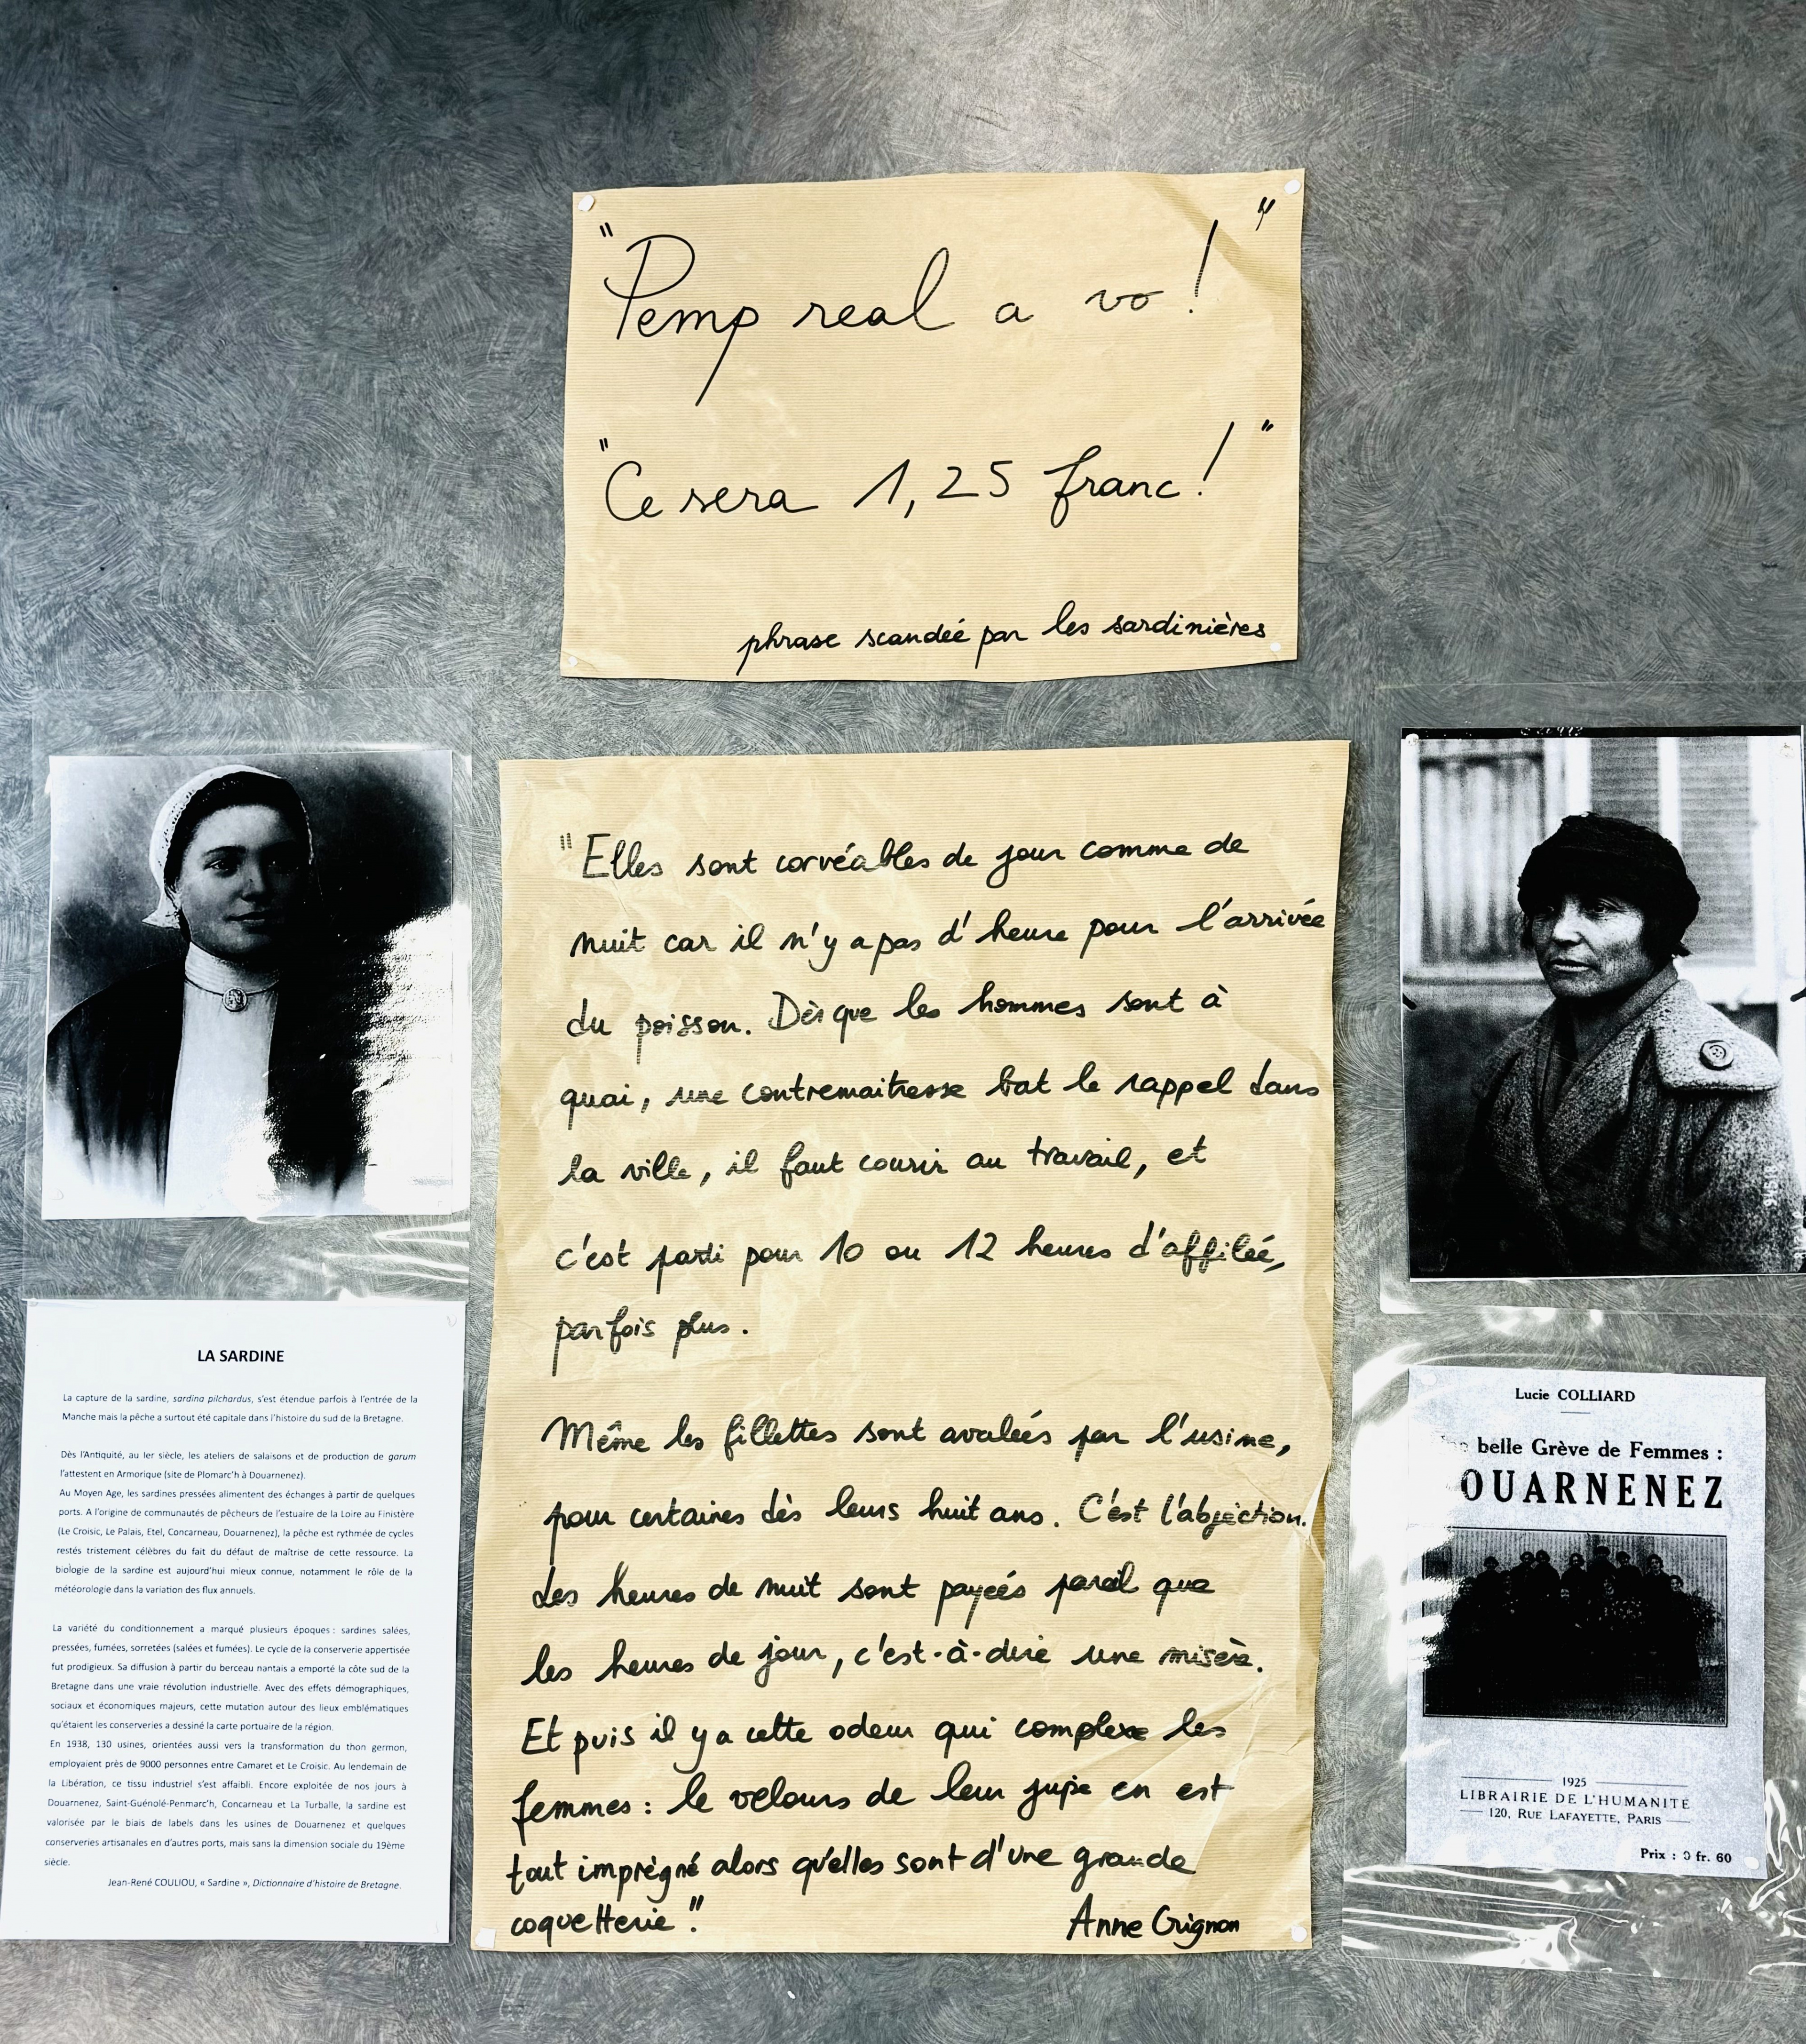 "Pemp real a vo!"
"Ce sera 1,25 franc!"
phrase scandée par les sardinières
"Elles sont corvéables de jour comme de
nuit car il n'y a pas d'heure pour l'arrivée
du poisson. Dès que les hommes sont à
quai, une contremaitresse bat le rappel dans
la ville, il faut courir au travail, et
c'est parti pour 10 ou 12 heures d'affilée,
parfois plus.
Même les fillettes sont avalées par l'usine,
pour certaines dès leurs huit ans. C'est l'abjection.
Les heures de nuit sont payées pareil que
les heures de jour, c'est-à-dire une misère.
Et puis il y a cette odeur qui complexe les
femmes : le velours de leur jupe en est
tout imprégné alors qu'elles sont d'une grande
coquetterie".
Anne Crignon
LA SARDINE
La capture de la sardine, sardina pilchardus, s'est étendue parfois à l'entrée de la
Manche mais la pêche a surtout été capitale dans l'histoire du sud de la Bretagne.
Dès l'Antiquité, au Ier siècle, les ateliers de salaisons et de production de garum
l'attestent en Armorique (site de Plomarc'h à Douarnenez).
Au Moyen Age, les sardines pressées alimentent des échanges à partir de quelques
ports. A l'origine de communautés de pêcheurs de l'estuaire de la Loire au Finistère
(Le Croisic, Le Palais, Etel, Concarneau, Douarnenez), la pêche est rythmée de cycles
restés tristement célèbres du fait du défaut de maîtrise de cette ressource. La
biologie de la sardine est aujourd'hui mieux connue, notamment le rôle de la
météorologie dans la variation des flux annuels.
La variété du conditionnement a marqué plusieurs époques : sardines salées,
pressées, fumées, sorretées (salées et fumées). Le cycle de la conserverie appertisée
fut prodigieux. Sa diffusion à partir du berceau nantais a emporté la côte sud de la
Bretagne dans une vraie révolution industrielle. Avec des effets démographiques,
sociaux et économiques majeurs, cette mutation autour des lieux emblématiques
qu'étaient les conserveries a dessiné la carte portuaire de la région.
En 1938, 130 usines, orientées aussi vers la transformation du thon germon,
employaient près de 9000 personnes entre Camaret et Le Croisic. Au lendemain de
la Libération, ce tissu industriel s'est affaibli. Encore exploitée de nos jours à
Douarnenez, Saint-Guénolé-Penmarc'h, Concarneau et La Turballe, la sardine est
valorisée par le biais de labels dans les usines de Douarnenez et quelques
conserveries artisanales en d'autres ports, mais sans la dimension sociale du 19ème
siècle.
Jean-René COULIOU, « Sardine », Dictionnaire d'histoire de Bretagne.
Lucie COLLIARD
belle Grève de Femmes :
OUARNENEZ
1925
LIBRAIRIE DE L'HUMANITÉ
120, RUE LAFAYETTE, PARIS
Prix : 0 fr. 60